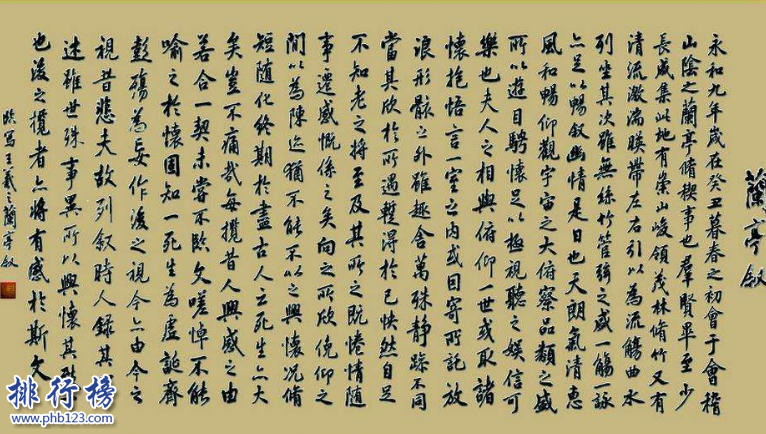 蘭亭敘
永和九年歲在癸丑暮春之初會于會稽
山陰之蘭亭脩稧事也羣賢畢至少
長咸集此地有崇山峻領茂林脩竹又有
清流激湍暎帶左右引以為流觴曲水
列坐其次雖無絲竹管弦之盛一觴一詠
亦足以暢敘幽情是日也天朗氣清惠
風和暢仰觀宇宙之大俯察品類之盛
所以遊目騁懷足以極視聽之娛信可
樂也夫人之相與俯仰一世或取諸
懷抱悟言一室之內或因寄所託放
浪形骸之外雖趣舍萬殊靜躁不同
當其欣於所遇暫得於己怏然自足
不知老之將至及其所之既惓情隨
事遷感慨係之矣向之所欣俛仰之
間以為陳迹猶不能不以之興懷況脩
短隨化終期於盡古人云死生亦大
矣豈不痛哉每攬昔人興感之由
若合一契未嘗不臨文嗟悼不能
喻之於懷固知一死生為虛誕齊
彭殤為妄作後之視今亦由今之
視昔悲夫故列敘時人錄其
述雖世殊事異所以興懷其致
也後之攬者亦將有感於斯文
臨寫王羲之蘭亭敘
排行榜
www.phb123.com